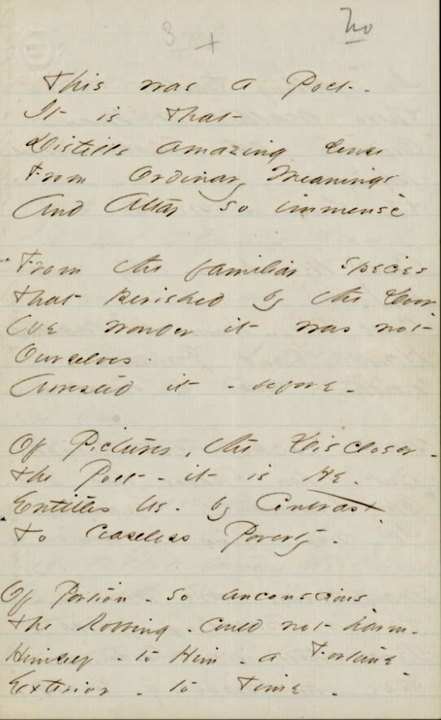 3 +
This was a Poet -
It is That -
Distills amazing sense
From Ordinary Meanings -
And Attar so immense
From the familiar species
That perished by the Door -
We wonder it was not
Ourselves -
Arrested it - before -
Of Pictures, the Discloser -
The Poet - it is He -
Entitles Us - by Contrast -
To ceaseless Poverty -
Of Portion - so unconscious
The Robbing - could not harm -
Himself - to Him - a Fortune
Exterior - to Time -